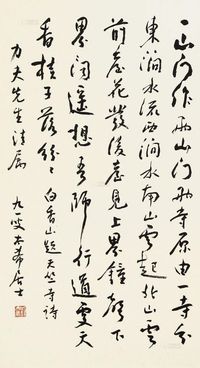 一山門作兩山門兩寺原由一寺分
東澗水流西澗水南山雲起北山雲
前臺花發後臺見上界鐘聲下
界聞遥想吾師行道處天
香桂子落紛〻 白香山題天竺寺詩
力夫先生清屬 九一叟太希居士